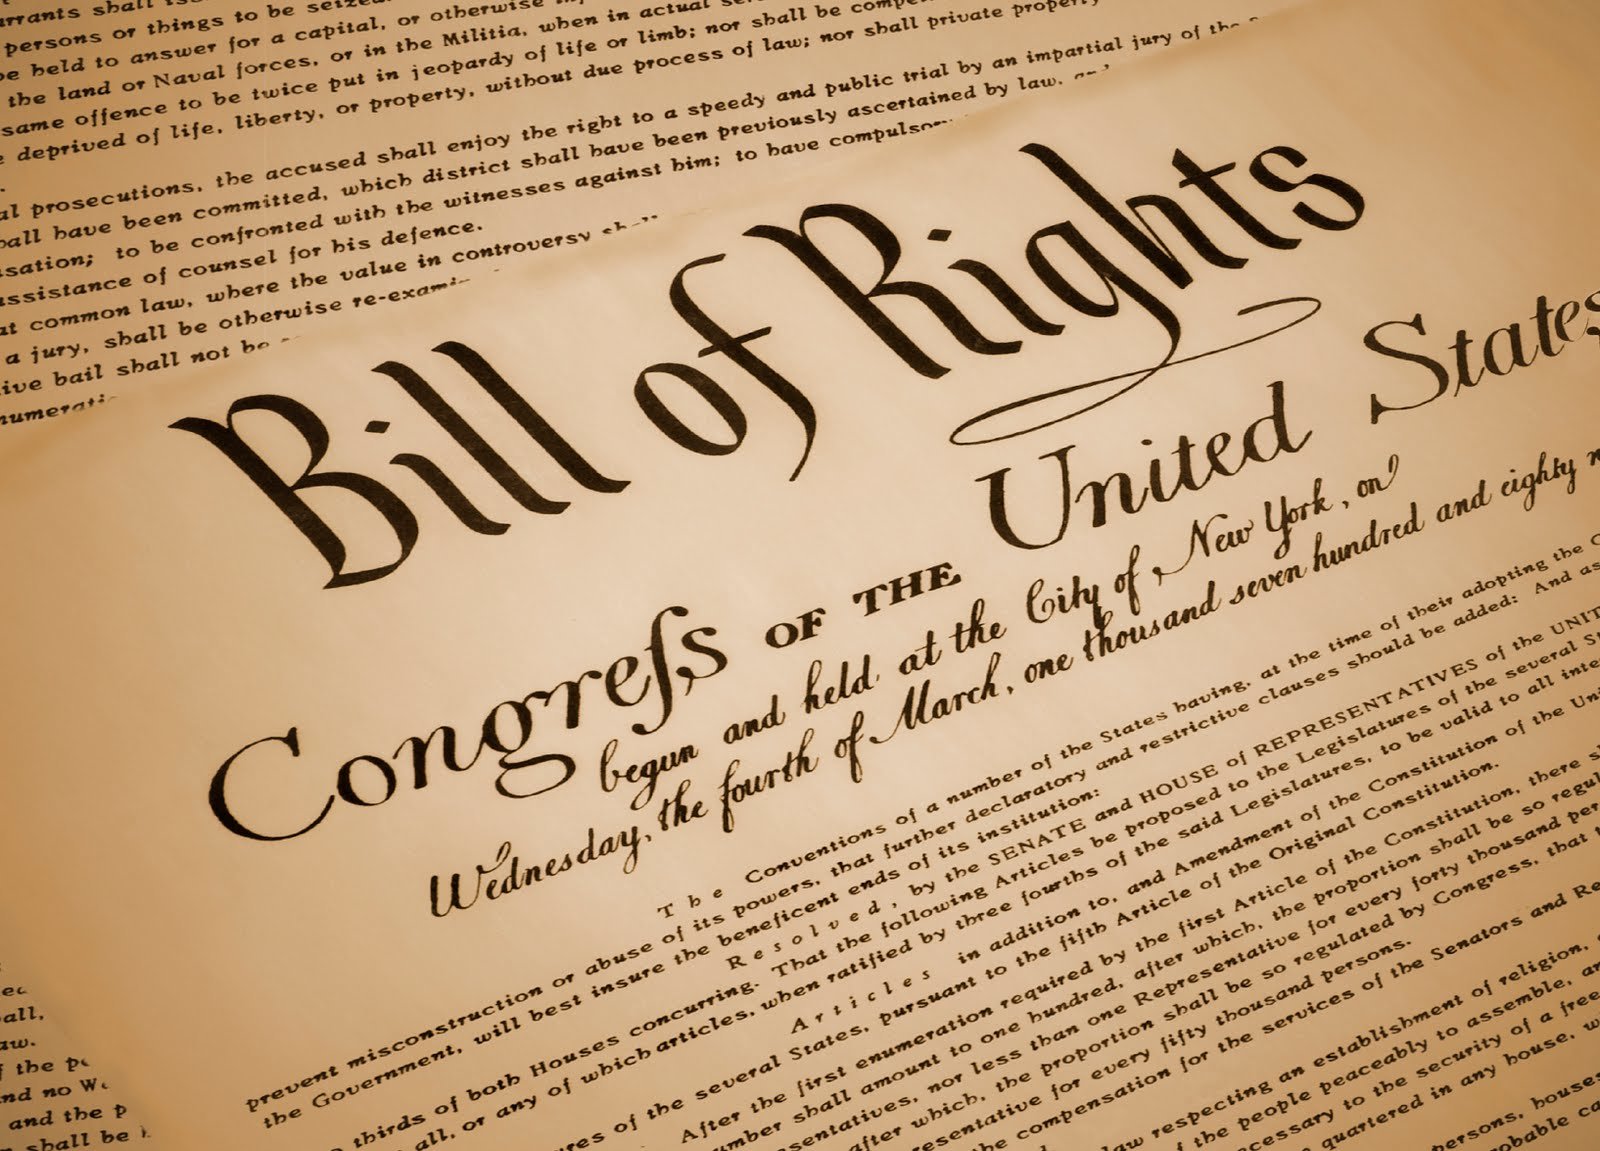 arrants shall
persons or things to be seized.
be held to answer for a capital, or otherwise
the land or Naval forces, or in the Militia, when in actual
same offence to be twice put in jeopardy of life or limb; nor shall be
deprived of life, liberty, or property, without due process of law; nor shall private property
al prosecutions, the accused shall enjoy the right to a speedy and public trial by an impartial jury of the
hall have been committed, which district shall have been previously ascertained by law,
usation; to be confronted with the witnesses against him; to have compulsory
assistance of counsel for his defence.
at common law, where the value in controversy shall
a jury, shall be otherwise re-exami
ive bail shall not be
numerati
Bill of Rights
Congreſs OF THE United States
begun and held at the City of New York, on
Wednesday, the fourth of March, one thousand seven hundred and eighty n
The Conventions of a number of the States having, at the time of their adopting the C
prevent misconstruction or abuse of its powers, that further declaratory and restrictive clauses should be added: And as
the Government, will best insure the beneficent ends of its institution:
Resolved, by the SENATE and HOUSE of REPRESENTATIVES of the UNIT
thirds of both Houses concurring. That the following Articles be proposed to the Legislatures of the several St
all, or any of which articles, when ratified by three fourths of the said Legislatures, to be valid to all inte
Articles in addition to, and Amendment of the Constitution of the Uni
ures of the several States, pursuant to the fifth Article of the Original Constitution.
After the first enumeration required by the first Article of the Constitution, there s
umber shall amount to one hundred, after which, the proportion shall be so regul
sentatives, nor less than one Representative for every forty thousand per
after which, the proportion shall be so regulated by Congress, that
resentative for every fifty thousand persons.
the compensation for the services of the Senators and Re
law respecting an establishment of religion,
f the people peaceably to assemble, an
ecessary to the security of a free
quartered in any house, w
persons, houses
robable ca
all,
aw.
f the pe
nd no Wa
and the p
shall be